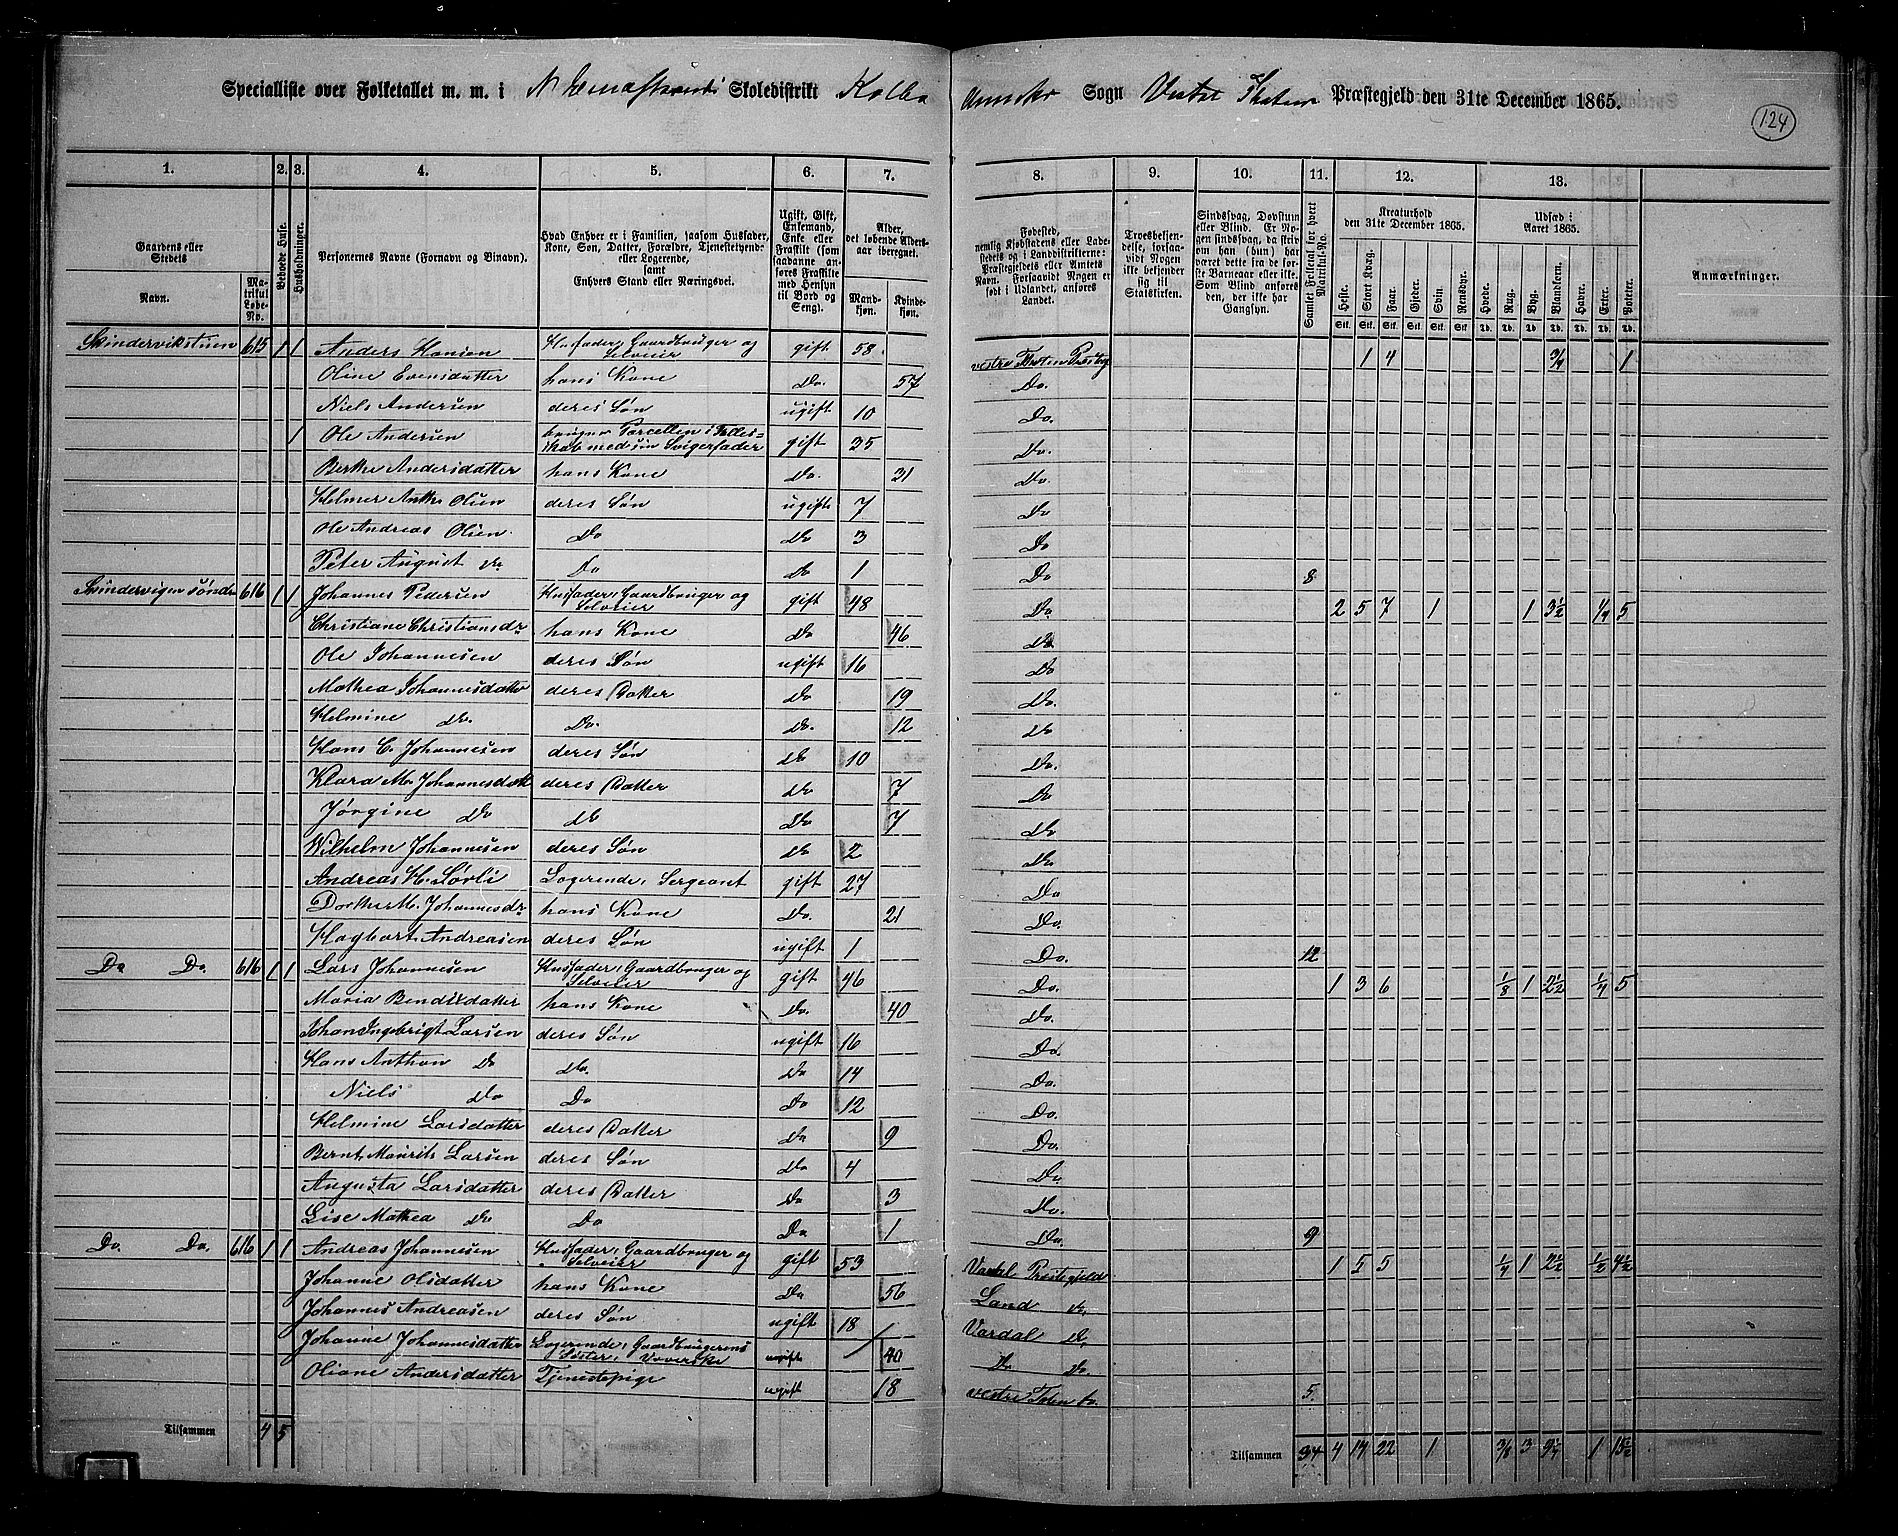 Specialliste over Folketallet m. m. i Skoledistrikt Kolbu Annex Sogn Vestre Thoten Præstegjeld den 31te December 1865.
124
1. 2. 3. 4. 5. 6. 7. 8. 9. 10. 11. 12. 13.
Gaardens eller Stedets
Navn.
Matrikul Løbe-No.
Beboede Huse.
Husholdninger.
Personernes Navne (Fornavn og Binavn).
Hvad Enhver er i Familien, saasom Husfader, Kone, Søn, Datter, Forældre, Tjenestetyende eller Logerende, samt Enhvers Stand eller Næringsvei.
Ugift, Gift, Enkemand, Enke eller Fraskilt (som saadanne anføres Fraskilte med Hensyn til Bord og Seng).
Alder, det løbende Aldersaar iberegnet.
Mandkjøn.
Kvindekjøn.
Fødested, nemlig Kjøbstadens eller Ladestedets og i Landdistrikterne: Præstegjeldets eller Amtets Navn. Forsaavidt Nogen er født i Udlandet, anføres Landet.
Troesbekjendelse, forsaavidt Nogen ikke bekjender sig til Statskirken.
Sindssvag, Døvstum eller Blind. Er Nogen sindssvag, da skriv om han (hun) har været dette fra de første Barneaar eller ikke. Som Blind anføres den, der ikke har Gangsyn.
Samlet Folketal for hvert Matrikul-No.
Kreaturhold den 31te December 1865.
Heste. Stort Kvæg. Faar. Gjeder. Svin. Rensdyr.
Udsæd i Aaret 1865.
Hvede. Rug. Byg. Blandkorn. Havre. Erter. Poteter.
Anmærkninger.
Skindervikstuen 615 1 1 Anders Hansen Husfader, Gaardbruger og Selveier gift 58 vestre Thoten Prestegj 1 4 3/4 1
Oline Evensdatter hans Kone Do. 57 Do.
Niels Andersen deres Søn ugift 10 Do.
1 Ole Andersen bruger Parcellen i Fælles=skab med sin Svigerfader gift 35 Do.
Berthe Andersdatter hans Kone Do. 31 Do.
Helmer Anth. Olsen deres Søn ugift 7 Do
Ole Andreas Olsen Do Do 3 Do
Peter August Do Do Do 1 Do 8
Skindervigen søndre 616 1 1 Johannes Pedersen Husfader, Gaardbruger og Selveier gift 48 Do 2 5 7 1 1 3 1/2 1/4 5
Christiane Christiansdr hans Kone Do 46 Do
Ole Johannesen deres Søn ugift 16 Do
Mathea Johannesdatter deres Datter Do 19 Do.
Helmine Do. Do. Do. 12 Do
Hans C. Johannesen deres Søn Do 10 Do.
Klara M. Johannesdatt deres Datter Do 7 Do
Jørgine Do Do Do 7 Do
Wilhelm Johannesen deres Søn Do 2 Do.
Andreas H. Sørli Logerende, Sergeant gift 27 Do
Dorthe M. Johannesdr hans Kone Do. 21 Do.
Hagbart Andreasen deres Søn ugift 1 Do. 12
Do Do. 616 1 1 Lars Johannesen Husfader, Gaardbruger og Selveier gift 46 Do. 1 3 6 1/8 1 2 1/2 1/4 5
Maria Bendixdatter hans Kone Do. 40 Do.
Johan Ingebrigt Larsen deres Søn ugift 16 Do.
Hans Anthon Do Do. Do 14 Do.
Niels Do Do Do 12 Do.
Helmine Larsdatter deres Datter Do 9 Do.
Bernt Mauritz Larsen deres Søn Do 4 Do.
Augusta Larsdatter deres Datter Do 3 Do.
Lise Mathea Do Do Do 1 Do. 9
Do. Do. 616 1 1 Andreas Johannesen Husfader, Gaardbruger og Selveier gift 53 Vardal Prestegjeld 1 5 5 1/4 1 2 1/2 1/2 4 1/2
Johanne Olsdatter hans Kone Do 56 Land do.
Johannes Andreasen deres Søn ugift 18 Vardal do.
Johanne Johannesdatter Logerende, Gaardbrugerens Søster, Væverske ugift 40 Do Do.
Oliane Andersdatter Tjenestepige ugift 18 vestre Toten do. 5
Tilsammen 4 5
Tilsammen 34 4 14 22 1 3/8 3 9 1/4 1 15 1/2